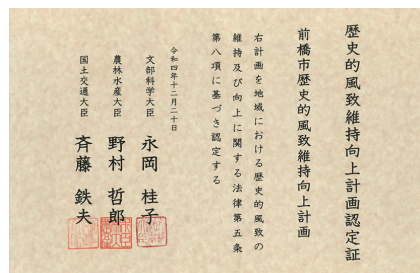 歴史的風致維持向上計画認定証
前橋市歴史的風致維持向上計画
右計画を地域における歴史的風致の
維持及び向上に関する法律第五条
第八項に基づき認定する
令和四年十二月二十日
文部科学大臣 永岡 桂子
農林水産大臣 野村 哲郎
国土交通大臣 斉藤 鉄夫